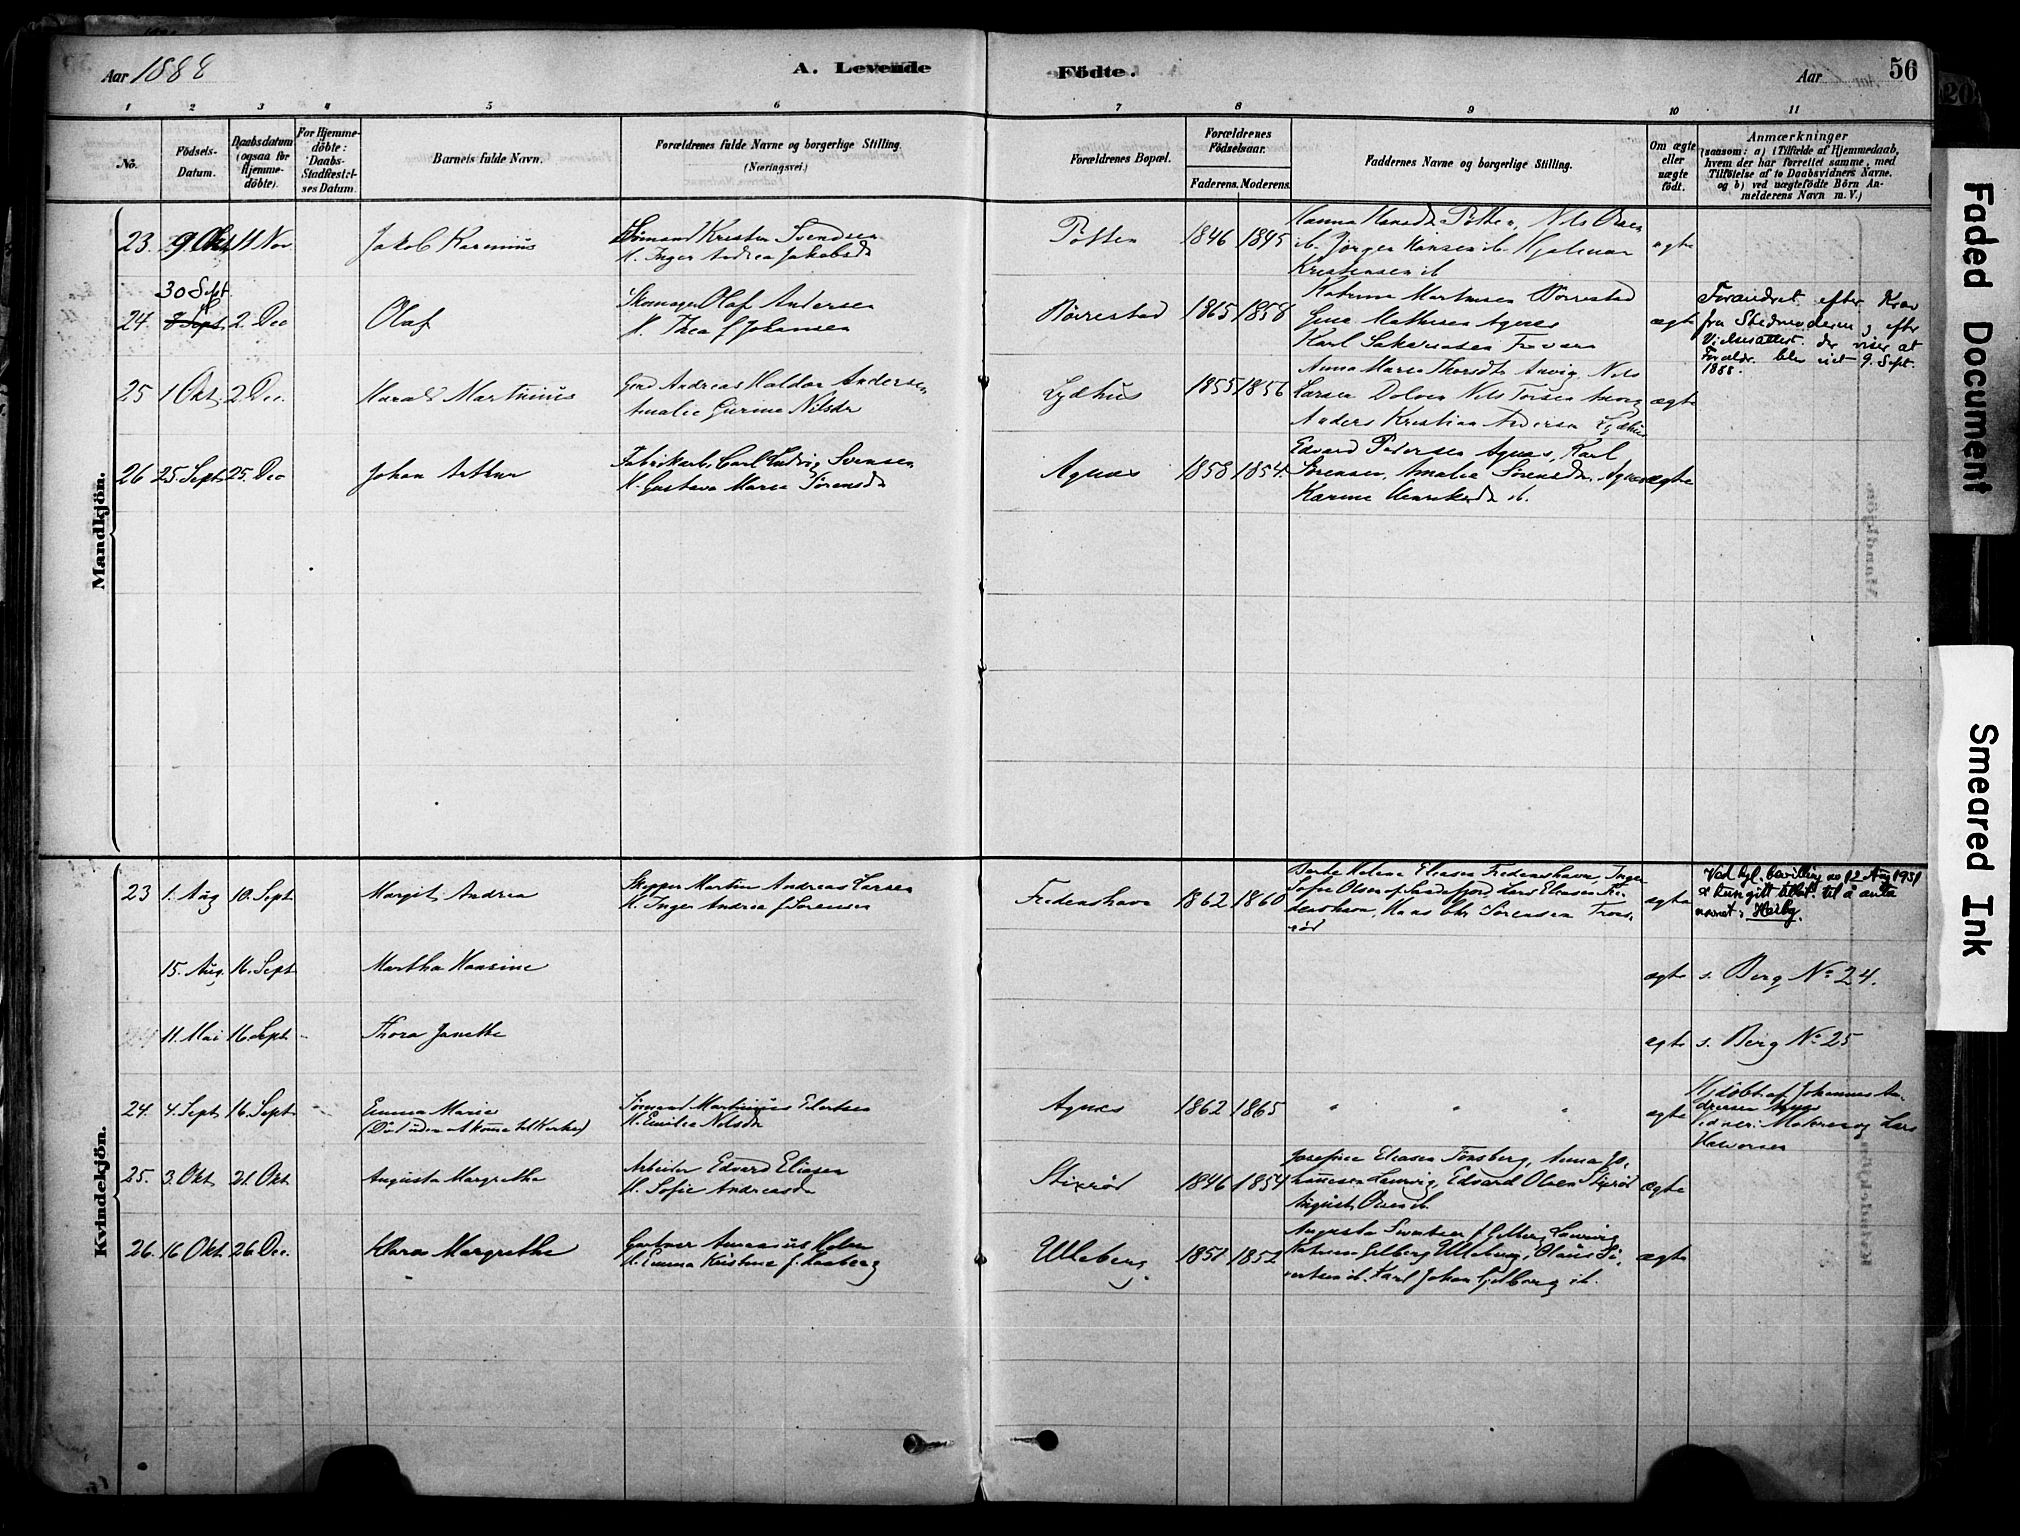 Aar 1888
A. Levende
Födte.
Aar
56
1 2 3 4 5 6 7 8 9 10 11
No.
Födsels-Datum.
Daabsdatum (ogsaa for Hjemme-döbte).
For Hjemme-döbte: Daabs-Stadfæstel-ses Datum.
Barnets fulde Navn.
Forældrenes fulde Navne og borgerlige Stilling.
(Næringsvei.)
Forældrenes Bopæl.
Forældrenes Födselsaar.
Faderens. Moderens.
Faddernes Navne og borgerlige Stilling.
Om ægte eller uægte födt.
Anmærkninger
(saasom: a) i Tilfælde af Hjemmedaab,
hvem der har forrettet samme, med
Tilföielse af to Daabsvidners Navne.
og b) ved uægtefödte Börn An-
melderens Navn m. V.)
Mandkjön.
23. 9. Okt 11 Nov Jakob Rasmus
Sømand Kristen Svendsen
H. Inger Andrea Jakobsdr
Potten 1846 1845
Hanna Hansdr Potten, Nils Olsen
ib. Jørgen Hansen ib. Hjalmar
Kristensen ib
ægte
30 Sept
24. 8 Sept 2. Dec Olaf
Skomager Olaf Andersen
H. Thea f Johansen
Børrestad 1865 1858
Katrine Børrestad
Gina Mathisen Agnes
Karl
ægte
Forandret efter Krav
fra Stedmoderen og efter
Vielsesattest der viser at
Forældr. blev viet 9. Sept.
1888.
25 1 Okt. 2. Dec. Harald Martinius
Gmd Andreas Haldor Andersen
Amalie Gurine Nilsdr
Lydhus 1855 1856
Anna Marie Thorsdtr Anvig, Nils
Larsen Dolven Nils Torsen Anvig
Anders Kristian Andersen Lydhus
ægte
26 25 Sept 25. Dec Johan Arthur
Fabrikarb. Carl Ludvig Svensen
H. Gustava Marie Sørensdr
Agnes 1858 1854.
Edvard Pedersen Agnes, Karl
Sørensen, Amalie Sørensdr. Agnes
Karine Henriksdr ib.
ægte
Kvindekjön.
23 1. Aug 10. Sept Margit Andrea
Skipper Martin Andreas Larsen
H. Inger Andrea f Sørensen
Fredenshavn 1862 1860
Berte Helene Eliasen Fredenshavn, Inger
Sofie Olsen af Sandefjord, Lars Eliasen Fre-
denshavn, Hans Chr Sørensen
ægte
Ved kgl. bevilling av 12 Aug 1931
er hun gitt tillat. til å anta
navnet: Heiby.
15. Aug. 16. Sept Martha Hansine
ægte s. Berg No 24.
11. Mai 16. Sept Thora Janethe
ægte s. Berg No 25
24. 4. Sept 16. Sept Emma Marie
(Död uden at komme til Kirke)
Sømand Martinius Edertsen
H. Emilie Nilsdr
Agnes 1862 1865 " " "
ægte
Hjdøbt af Johannes An-
dersen Agnes
Vidner: Moderen og Lars
Halvorsen
25. 3. Okt 21. Okt Augusta Margrethe
Arbeider Edvard Eliasen
H. Sofie Andreasdr
Stixrød 1846 1854
Josefine Eliasen Tønsberg, Anna Jo-
hannesen Laurvig, Edvard Olsen Stixrød
August Olsen ib.
ægte
26. 16 Okt. 26. Dec. Klara Margrethe
Gartner Holm
H. Emma Kristine f. Aasberg
Ulleberg 1851 1852
Augusta Sivertsen f. Gelberg Laurvig
Katrine Gelberg Ulleberg, Olaus Si-
vertsen ib. Karl Johan Gelberg ib.
ægte
Faded Document
Smeared Ink